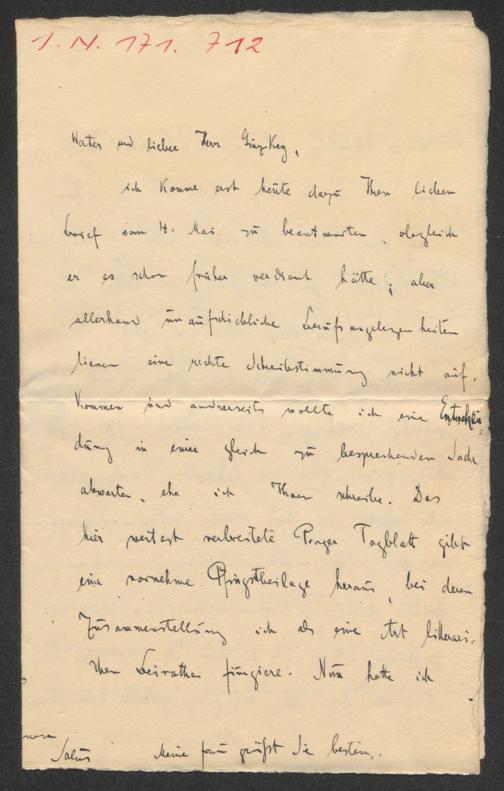 I. N. 171. 712
Werter und lieber Herr Ginzkey,
ich komme erst heute dazu Ihren lieben
Brief vom 4. Mai zu beantworten, obgleich
er es schon früher verdient hätte; aber
allerhand unaufschiebliche Berufsangelegenheiten
liessen eine rechte Schreibstimmung nicht auf-
kommen und andrerseits wollte ich eine Entschei-
dung in einer gleich zu besprechenden Sache
abwarten, ehe ich Ihnen schreibe. Das
hier weitest verbreitete Prager Tagblatt gibt
eine vornehme Pfingstbeilage heraus, bei deren
Zusammenstellung ich als eine Art litterari-
schen Beirathes fungiere. Nun hatte ich
Salus Meine Frau grüßt Sie bestens.